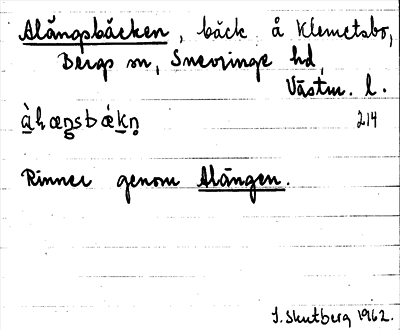 Alängsbäcken, bäck å Klemetsbo,
Bergs sn, Snevringe hd,
Västm. l.
214
Rinner genom Alängen.
S. Skutberg 1962.